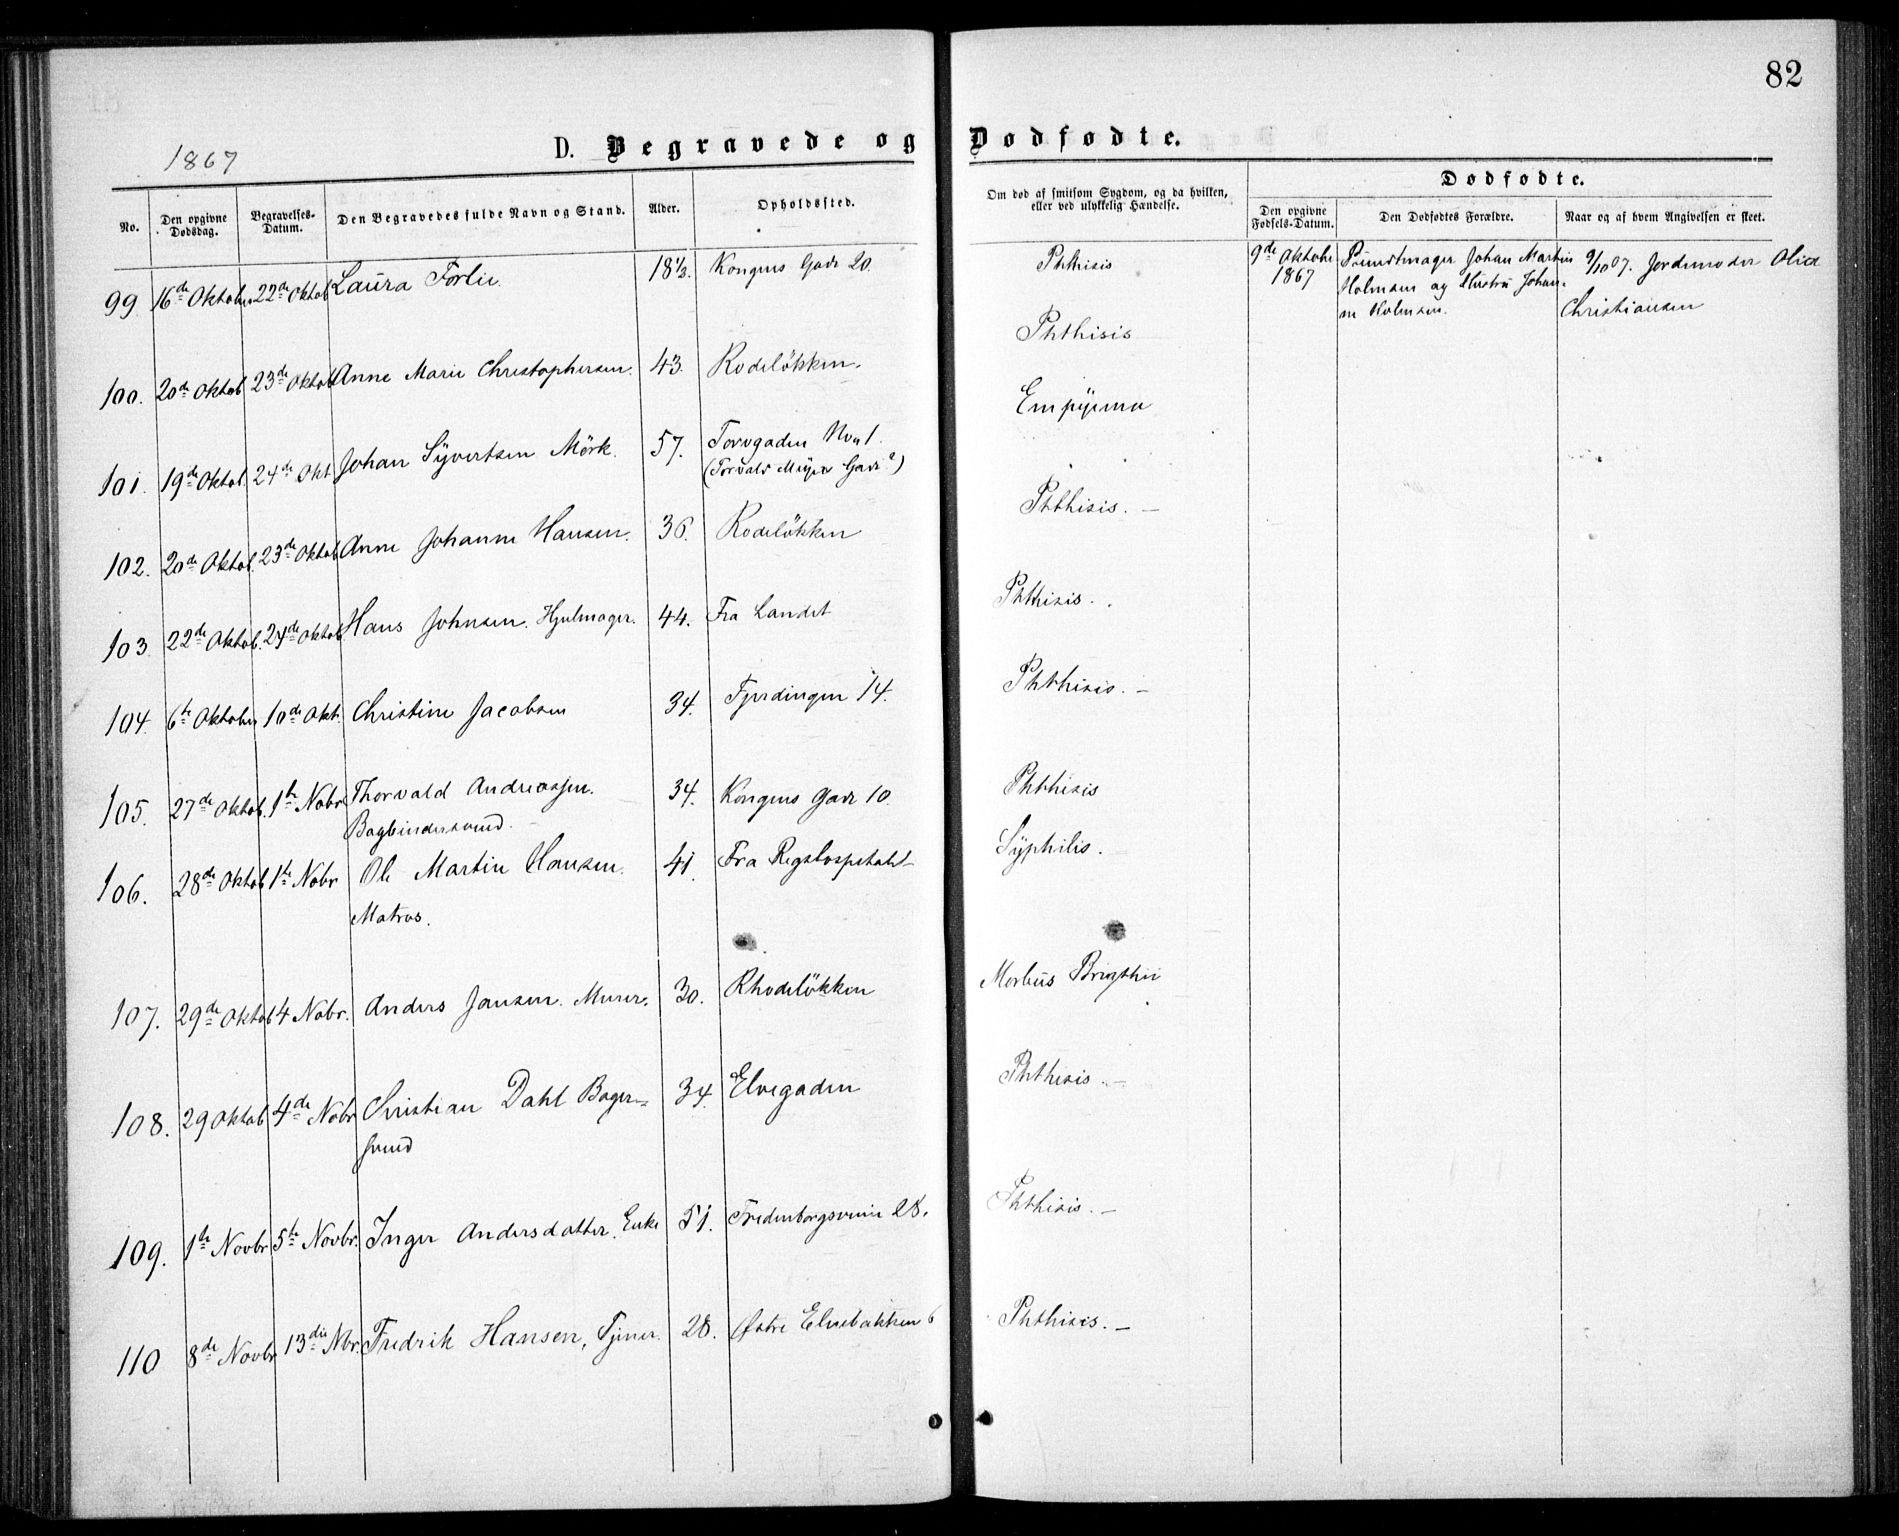 82
1867
D. Begravede og Dødfødte.
No.
Den opgivne Dødsdag.
Begravelses-Datum.
Den Begravedes fulde Navn og Stand.
Alder.
Opholdssted.
Om død af smitsom Sygdom, og da hvilken, eller ved ulykkelig Hændelse.
Dødfødte.
Den opgivne Fødsels-Datum.
Den Dødfødtes Forældre.
Naar og af hvem Angivelsen er skeet.
99 16de Oktobr. 22de Oktob Laura Forlie. 18½. Kongens Gade 20. Phthisis
9de Oktobr 1867 Johan Martin Holmsen og Hustru Johanne Holmsen. 9/10 67. Jordemoder Olia Christiansen
100. 20de Oktob 23de Oktob Anne Marie Christophersen. 43. Rodeløkken. Phthisis
101. 19de Oktob. 24de Okt. Johan Syvertsen Mörk. 57. Torvgaden No 1. Empyema
(Torvald Meyer Gade?)
102. 20de Oktob. 23de Oktob Anne Johanne Hansen. 36. Rodelökken Phthisis. —
103 22de Oktob. 24de Oktob Hans Johnsen. Hjulmager. 44. Fra Landet Phthisis.
104. 6te Oktober 10de Okt. Christine Jacobsen 34. Fjerdingen 14. Phthisis. —
105. 27de Oktob. 1te Nobr Thorvald Andreassen. 34. Kongens Gade 10. Phthisis
Bogbindersvend. —
106. 28de Oktob 1te Nobr Ole Martin Hansen. 41. Fra Rigshospitalet Syphilis.
Matros.
107. 29de Oktob 4 Nobr. Anders Jansen. Murer. 30. Rhodelökken Morbus Brigthii
108. 29 Oktob 4de Nobr Christian Dahl Bager- 34. Elvegaden Phthisis. —
svend
109. 1te Novbr 5te Novbr. Inger Andersdatter. Enke 51. Fredensborgsveien 28. Phthisis. —
110 8de Novbr 13die Nbr. Fredrik Hansen, Tjener. 28. Østre Elvebakken 6 Phthisis. —